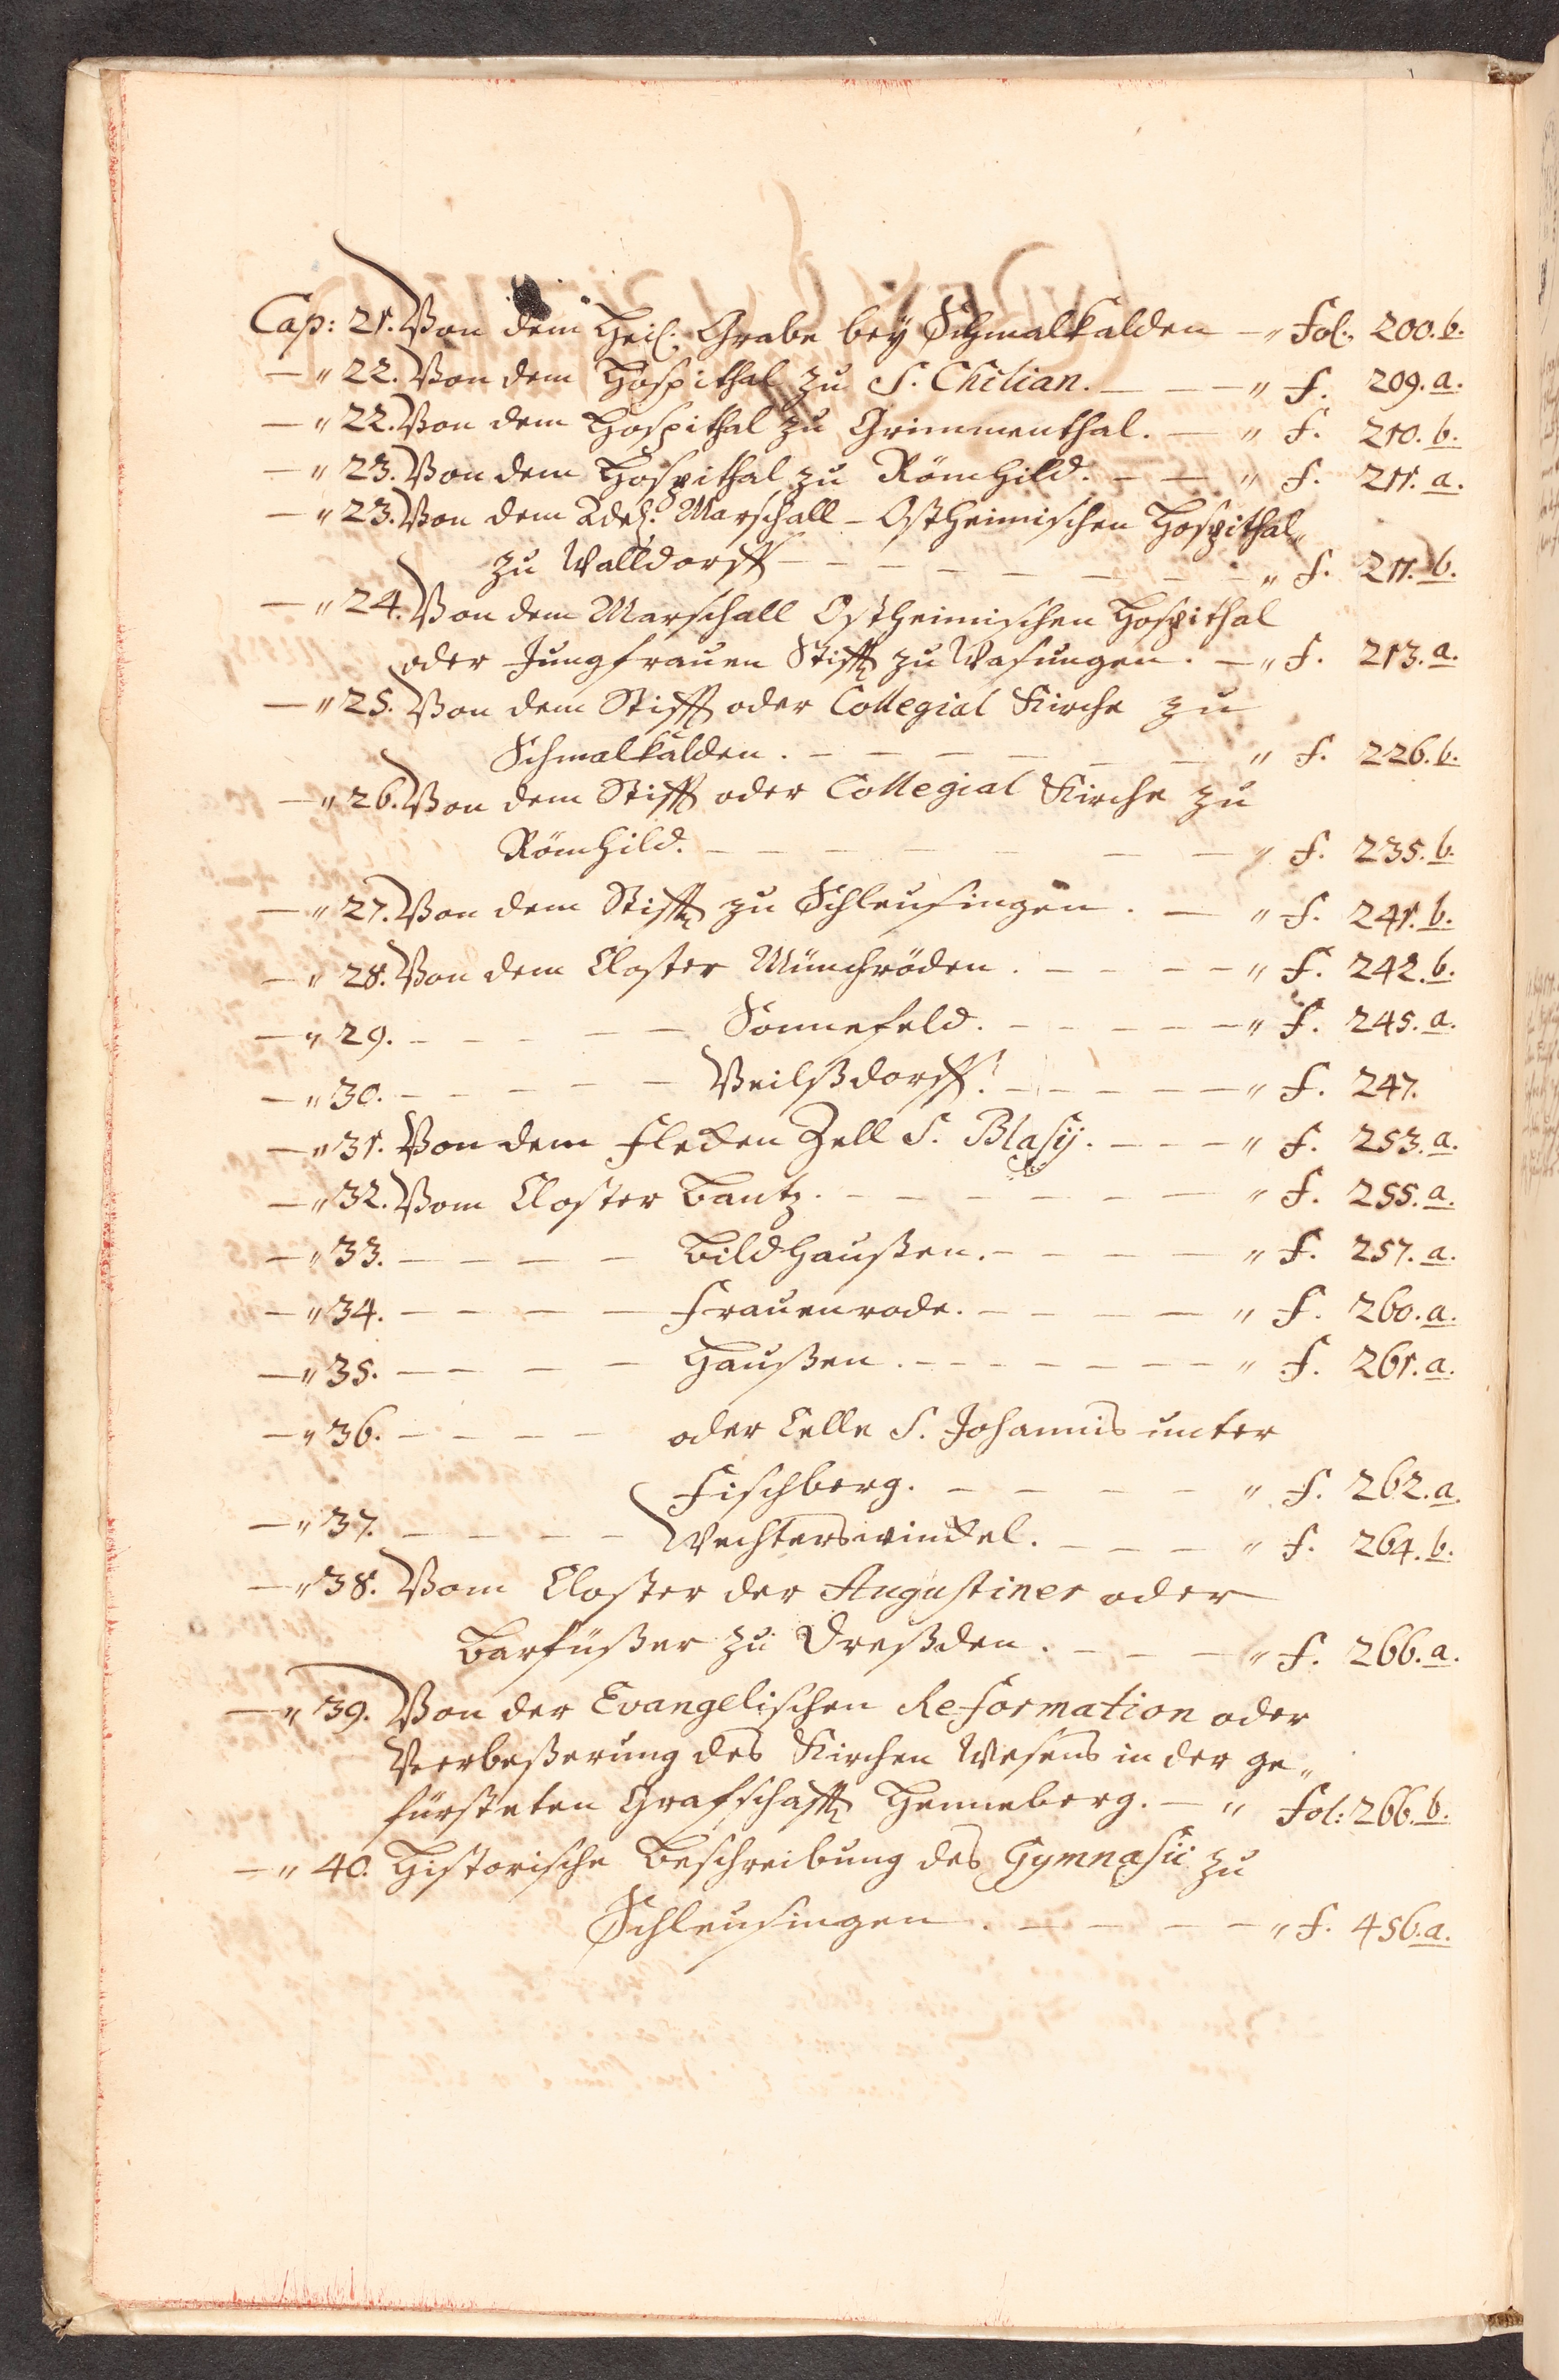 Cap: 21. Von dem Heil: Grabe bey Schmalkalden — " Fol: 200. b.
— " 22. Von dem Hospithal zu S. Chilian. — — — " f. 209. a.
— " 22. Von dem Hospithal zu Grimmenthal. — " f. 210. b.
— " 23. Von dem Hospithal zu Römhild. — — " f. 211. a.
— " 23. Von dem Adel: Marschall - Ostheimischen Hospithal "
zu Walldorff — — — — — — — — — " f. 211. b.
— " 24. Von dem Marschall Ostheimischen Hospithal
oder Jungfrauen Stifft zu Wasungen. — " f. 213. a.
— " 25. Von dem Stifft oder Collegial Kirche zu
Schmalkalden. — — — — — — " f. 226. b.
— " 26. Von dem Stifft oder Collegial Kirche zu
Römhild. — — — — — — — " f. 235. b.
— " 27. Von dem Stifft zu Schleusingen. — " f. 241. b.
— " 28. Von dem Closter Münchröden. — — — — " f. 242. b.
— " 29. — — — — — Sonnefeld. — — — — — " f. 245. a.
— " 30. — — — — — Veilßdorff. — — — — — " f. 247.
— " 31. Von dem Flecken Zell S. Blasij. — — — " f. 253. a.
— " 32. Vom Closter Bantz. — — — — — — — " f. 255. a.
— " 33. — — — — — Bildhaußen. — — — — — " f. 257. a.
— " 34. — — — — — Frauenrode. — — — — — " f. 260. a.
— " 35. — — — — — Haußen. — — — — — — — " f. 261. a.
— " 36. — — — — — oder Celle S. Johannis unter
Fischberg. — — — — — " f. 262. a.
— " 37. — — — — — Wechterswinckel. — — — — " f. 264. b.
— " 38. Vom Closter der Augustiner oder
Barfüßer zu Dreßden. — — — — " f. 266. a.
— " 39. Von der Evangelischen Reformation oder
Verbeßerung des Kirchen Wesens in der ge "
fürsteten Grafschafft Henneberg. — " Fol: 266. b.
— " 40. Historische Beschreibung des Gymnasii zu
Schleusingen. — — — — — " f. 456. a.